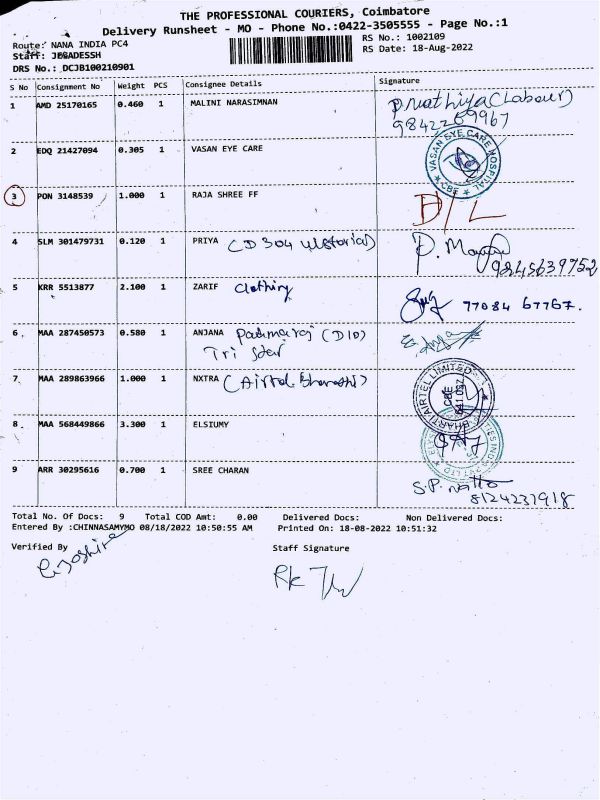 THE PROFESSIONAL COURIERS, Coimbatore
Delivery Runsheet - MO - Phone No.:0422-3505555 - Page No.:1
Route: NANA INDIA PC4
RS No.: 1002109
Staff: JEGADESSH
RS Date: 18-Aug-2022
DRS No.: DCJB100210901
S No Consignment No Weight PCS Consignee Details Signature
1 AMD 25170165 0.460 1 MALINI NARASIMNAN (Labour)
2 EDQ 21427094 0.305 1 VASAN EYE CARE VASAN EYE CARE HOSPITAL CBE
3 PON 3148539 1.000 1 RAJA SHREE FF D/L
4 SLM 301479731 0.120 1 PRIYA (D304
9845639752
5 KRR 5513877 2.100 1 ZARIF Clothing 77084 67767.
6. MAA 287450573 0.580 1 ANJANA Padmaraj (D10)
Tri Star
7. MAA 289863966 1.000 1 NXTRA (Airtel Bharathi) BHARTI AIRTEL LIMITED CBE
8. MAA 568449866 3.300 1 ELSIUMY
9 ARR 30295616 0.700 1 SREE CHARAN S.P.
8124231918
Total No. Of Docs: 9 Total COD Amt: 0.00 Delivered Docs: Non Delivered Docs:
Entered By :CHINNASAMYMO 08/18/2022 10:50:55 AM Printed On: 18-08-2022 10:51:32
Verified By Staff Signature